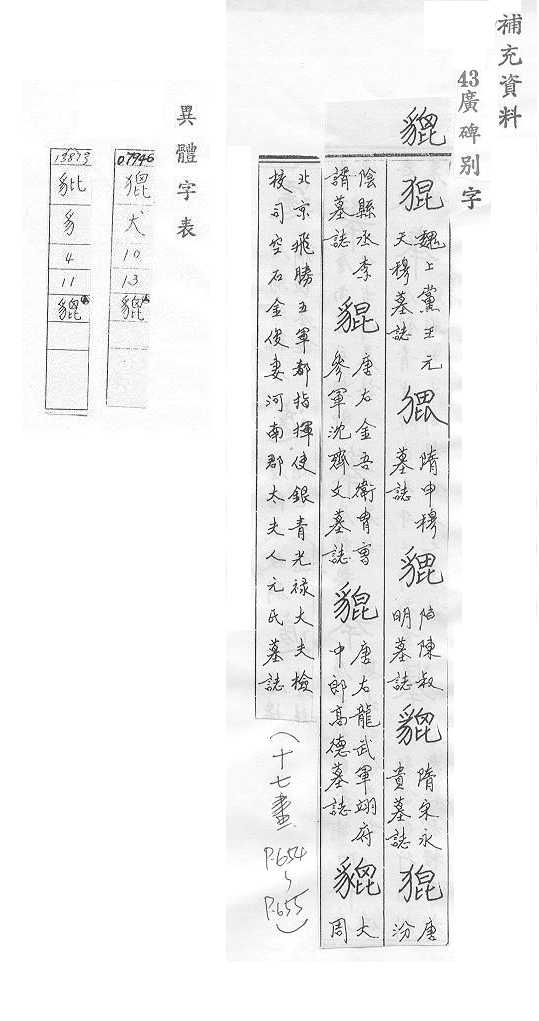 補充資料
43廣碑別字
貔
猑魏上黨王元天穆墓誌
猥隋申穆墓誌
貔隋陳叔明墓誌
貔隋宋永貴墓誌
猑唐汾
陰縣丞李諝墓誌
貔唐右金吾衛胄曹參軍沈齊文墓誌
貔唐右龍武軍翊府中郎高德墓誌
貔大周
北京飛勝五軍都指揮使銀青光祿大夫檢
校司空石金俊妻河南郡太夫人元氏墓誌
(十七畫
P.654
~
P.655)
異體字表
07946
犬
10
13
貔
13873
豼
豸
4
11
貔